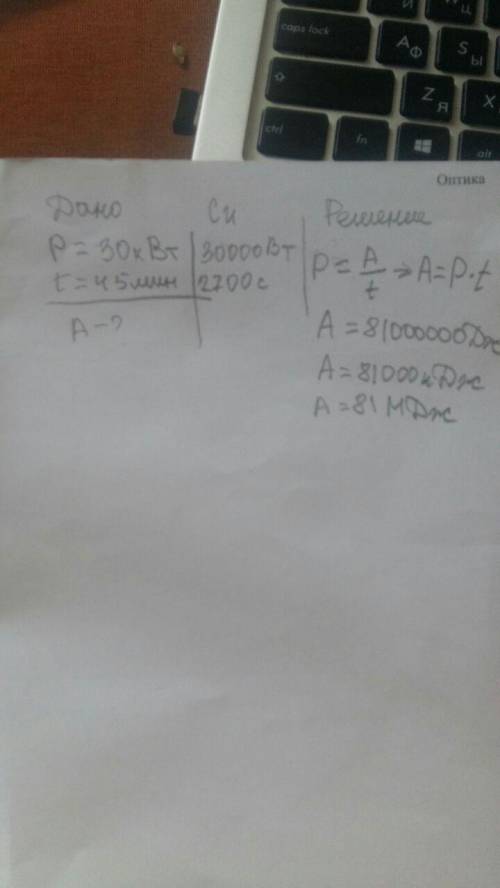 caps lock
А Ф
S Ы
Z Я
X
ctrl
fn
alt
Оптика
Дано
Си
Решение
P = 30кВт
30000Вт
t = 45мин
2700с
P = A/t → A=P·t
A - ?
A = 81000000Дж
A = 81000кДж
A = 81 МДж